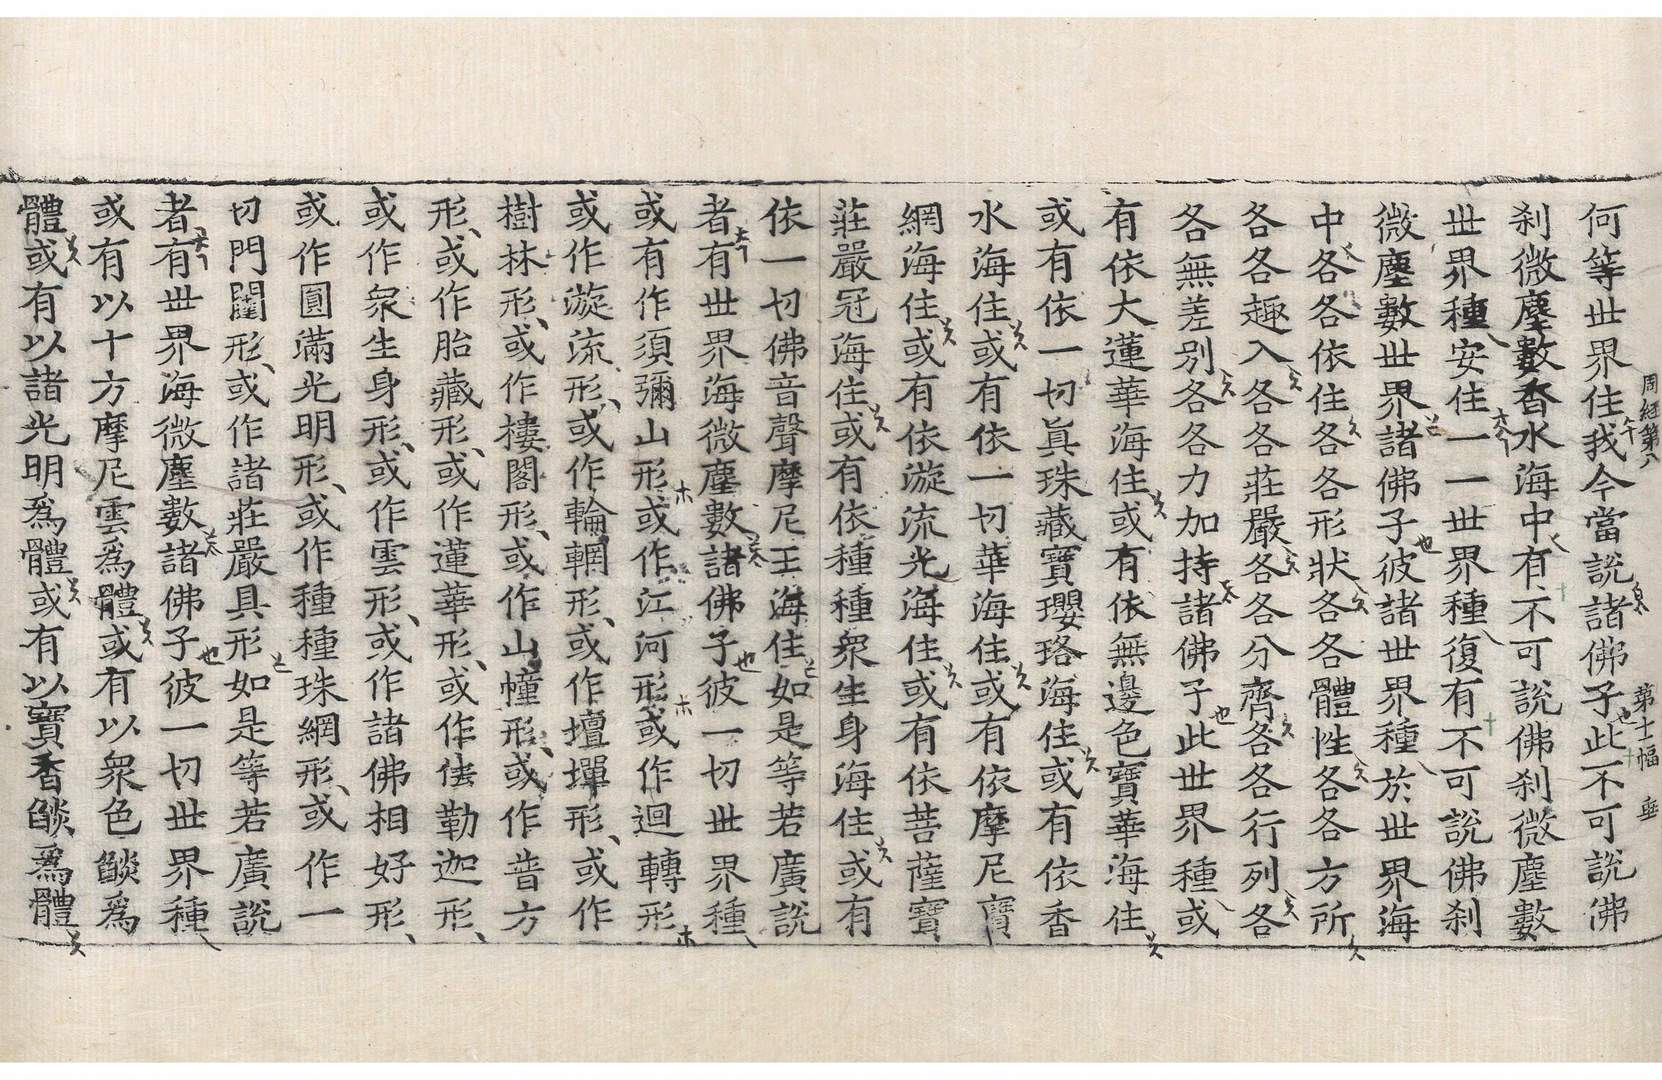 周經第六 第十二幅 垂
何等世界住我今當說諸佛子此不可說佛
刹微塵數香水海中有不可說佛刹微塵數
世界種安住一一世界種復有不可說佛刹
微塵數世界諸佛子彼諸世界種於世界海
中各各依住各各形狀各各體性各各方所
各各趣入各各莊嚴各各分齊各各行列各
各無差別各各力加持諸佛子此世界種或
有依大蓮華海住或有依無邊色寶華海住
或有依一切眞珠藏寶瓔珞海住或有依香
水海住或有依一切華海住或有依摩尼寶
網海住或有依漩流光海住或有依菩薩寶
莊嚴冠海住或有依種種衆生身海住或有
依一切佛音聲摩尼王海住如是等若廣說
者有世界海微塵數諸佛子彼一切世界種
或有作須彌山形或作江河形或作迴轉形
或作漩流形或作輪輞形或作壇墠形或作
樹林形或作樓閣形或作山幢形或作普方
形或作胎藏形或作蓮華形或作佉勒迦形
或作衆生身形或作雲形或作諸佛相好形
或作圓滿光明形或作種種珠網形或作一
切門闥形或作諸莊嚴具形如是等若廣說
者有世界海微塵數諸佛子彼一切世界種
或有以十方摩尼雲爲體或有以衆色燄爲
體或有以諸光明爲體或有以寶香燄爲體